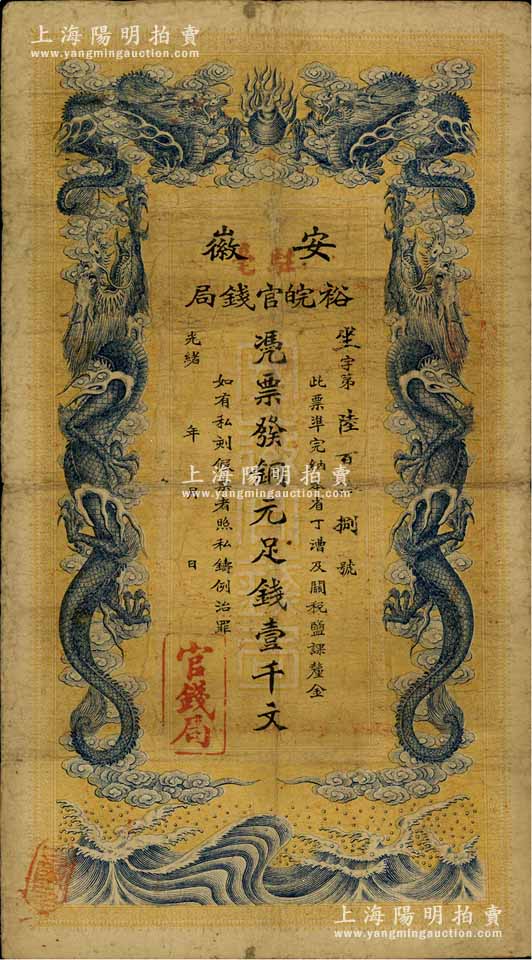 上海陽明拍賣
www.yangmingauction.com
安徽
裕皖官錢局
坐字第陸百捌號
此票準完納
省丁漕及關稅鹽課釐金
憑票發銅元足錢壹千文
如有私刻
者照私鑄例治罪
光緒 年 日
官錢局
上海陽明拍賣
www.yangmingauction.com
上海陽明拍賣
www.yangmingauction.com